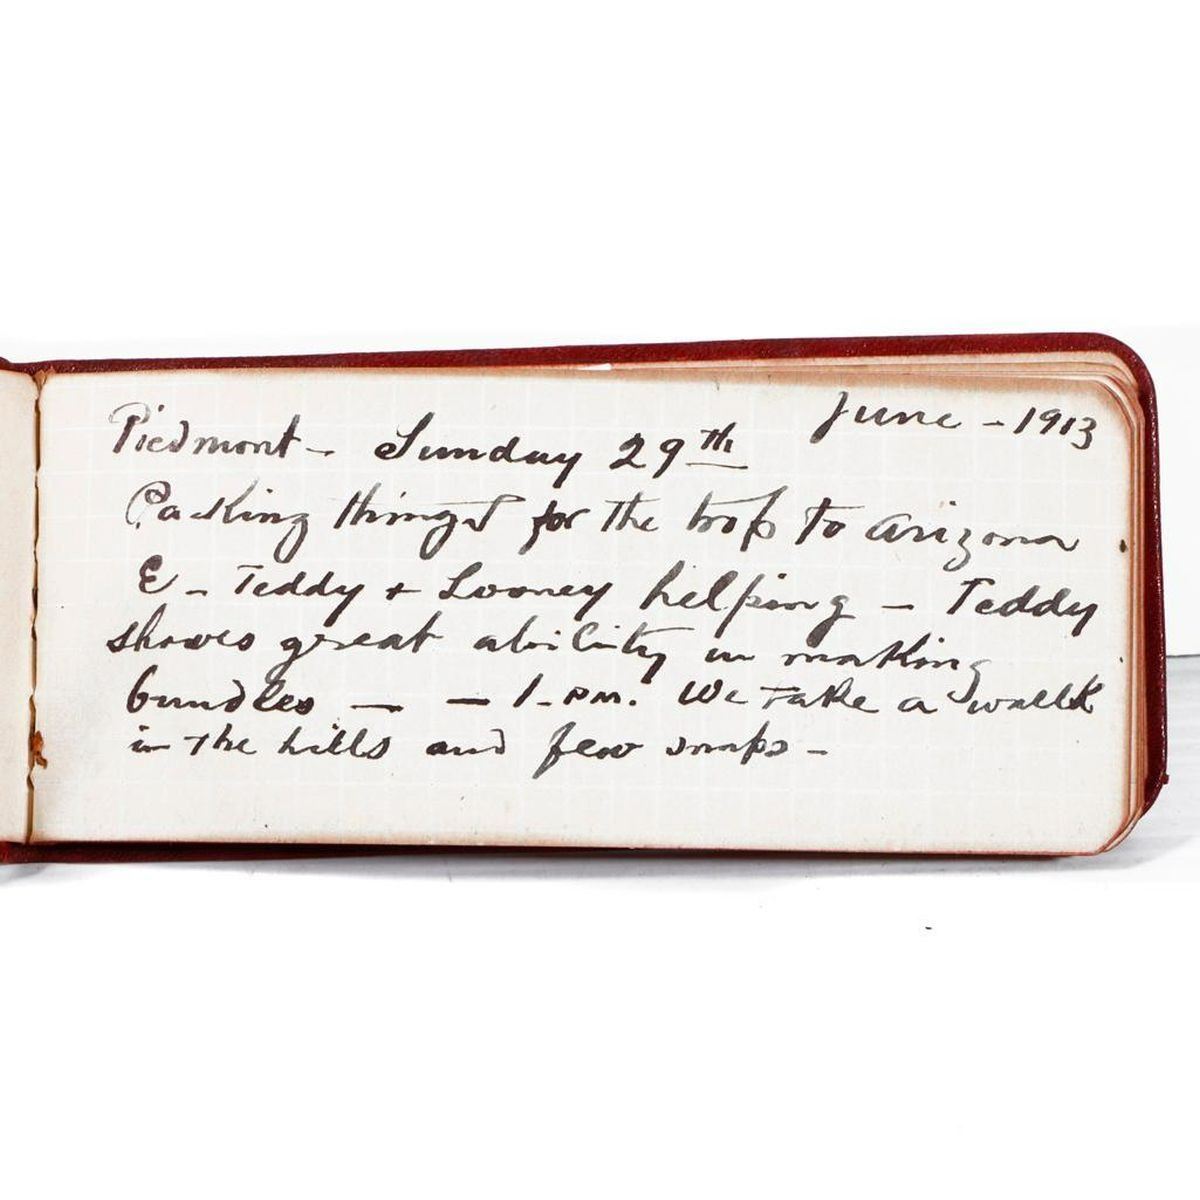 June - 1913
Piedmont - Sunday 29th
Packing things for the trip to Arizona
E - Teddy + Looney helping - Teddy
shows great ability in making
bundles — — 1 - PM. We take a walk
in the hills and few snaps -